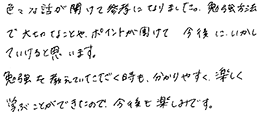 色々な話が聞けて参考になりました。勉強方法
で大切なことや、ポイントが聞けて今後にいかし
ていけると思います。
勉強を教えていただく時も、分かりやすく、楽しく
学ぶことができたので、今後も楽しみです。